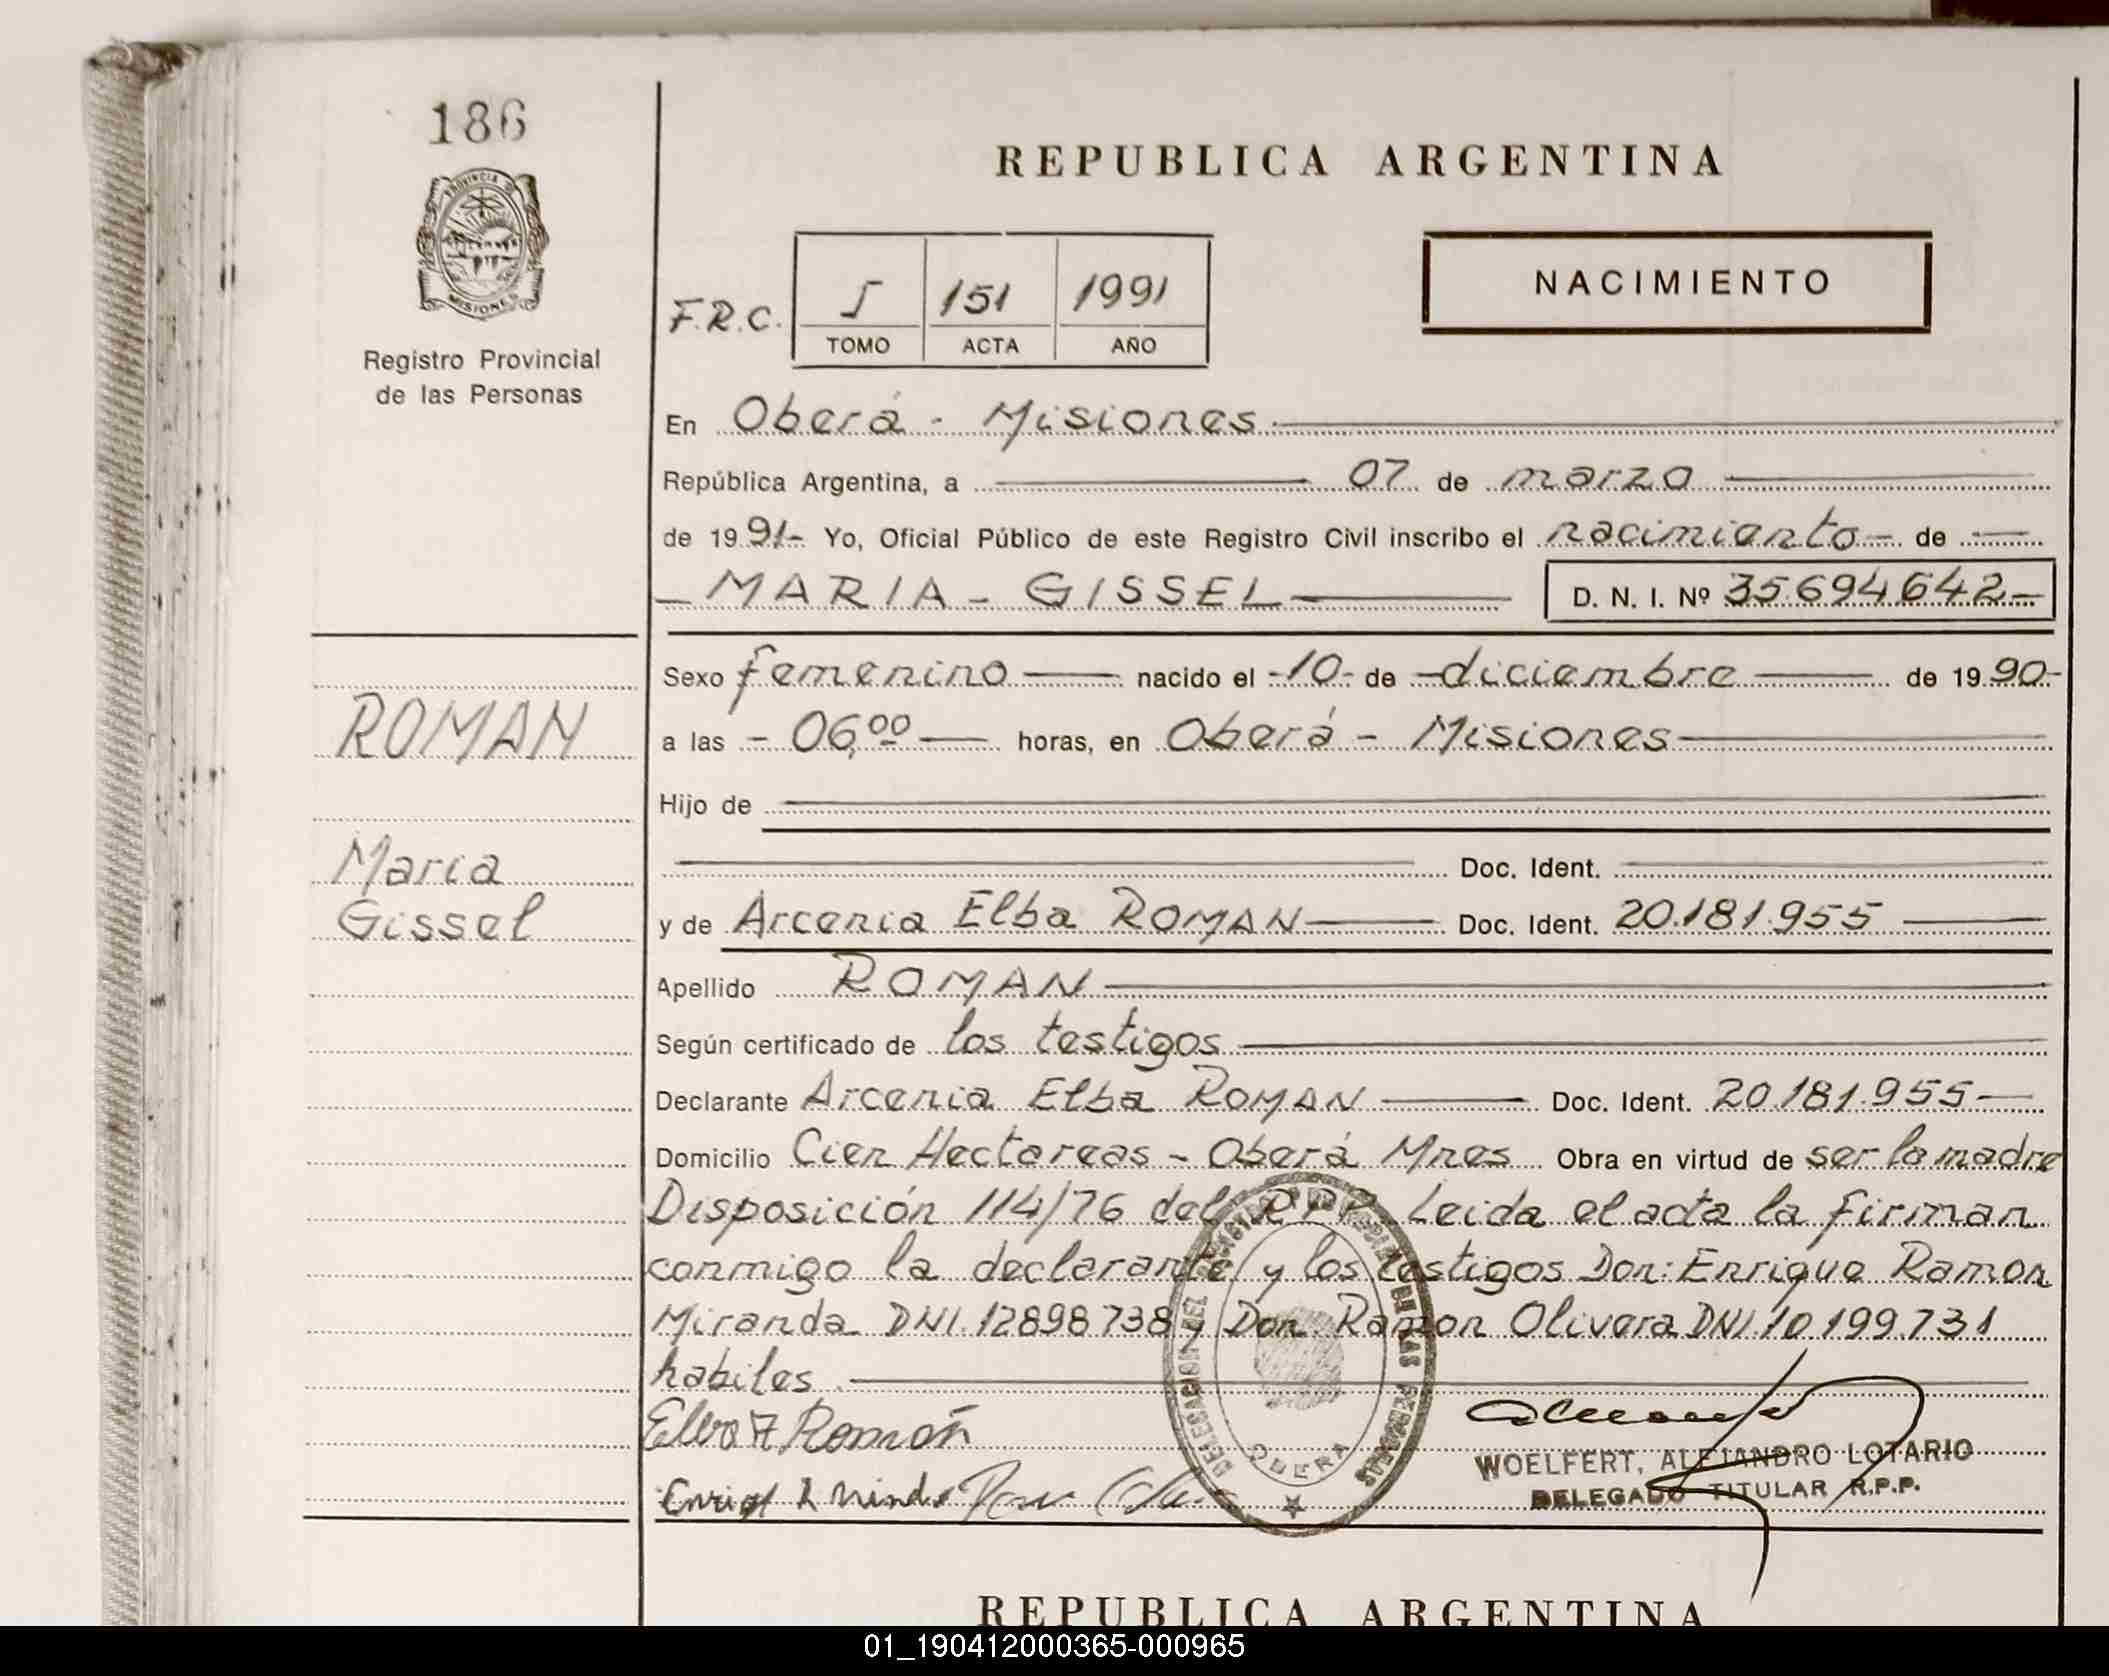 186
PROVINCIA DE
MISIONES
Registro Provincial
de las Personas
REPUBLICA ARGENTINA
NACIMIENTO
F.R.C. 5 151 1991
TOMO ACTA AÑO
En Oberá - Misiones
República Argentina, a 07 de marzo
de 1991- Yo, Oficial Público de este Registro Civil inscribo el nacimiento - de
- MARIA - GISSEL D. N. I. Nº 35.694.642-
Sexo femenino nacido el -10- de -diciembre de 1990-
a las - 06,00 horas, en Oberá - Misiones
Hijo de
Doc. Ident.
y de Arcenia Elba ROMAN Doc. Ident. 20.181.955
Apellido ROMAN
Según certificado de los testigos
Declarante Arcenia Elba ROMAN Doc. Ident. 20.181.955-
Domicilio Cien Hectareas - Oberá Mnes Obra en virtud de ser la madre
Disposición 114/76 del R.P.P. Leida el acta la firman
conmigo la declarante y los testigos Don: Enrique Ramon
Miranda DNI. 12898738 y Don. Ramon Olivera DNI 10.199.731
habiles.
ROMAN
Maria
Gissel
Roman
DELEGACION DEL REGISTRO PROVINCIAL DE LAS PERSONAS
OBERA
WOELFERT, ALEJANDRO LOTARIO
DELEGADO TITULAR R.P.P.
REPUBLICA ARGENTINA
01_190412000365-000965